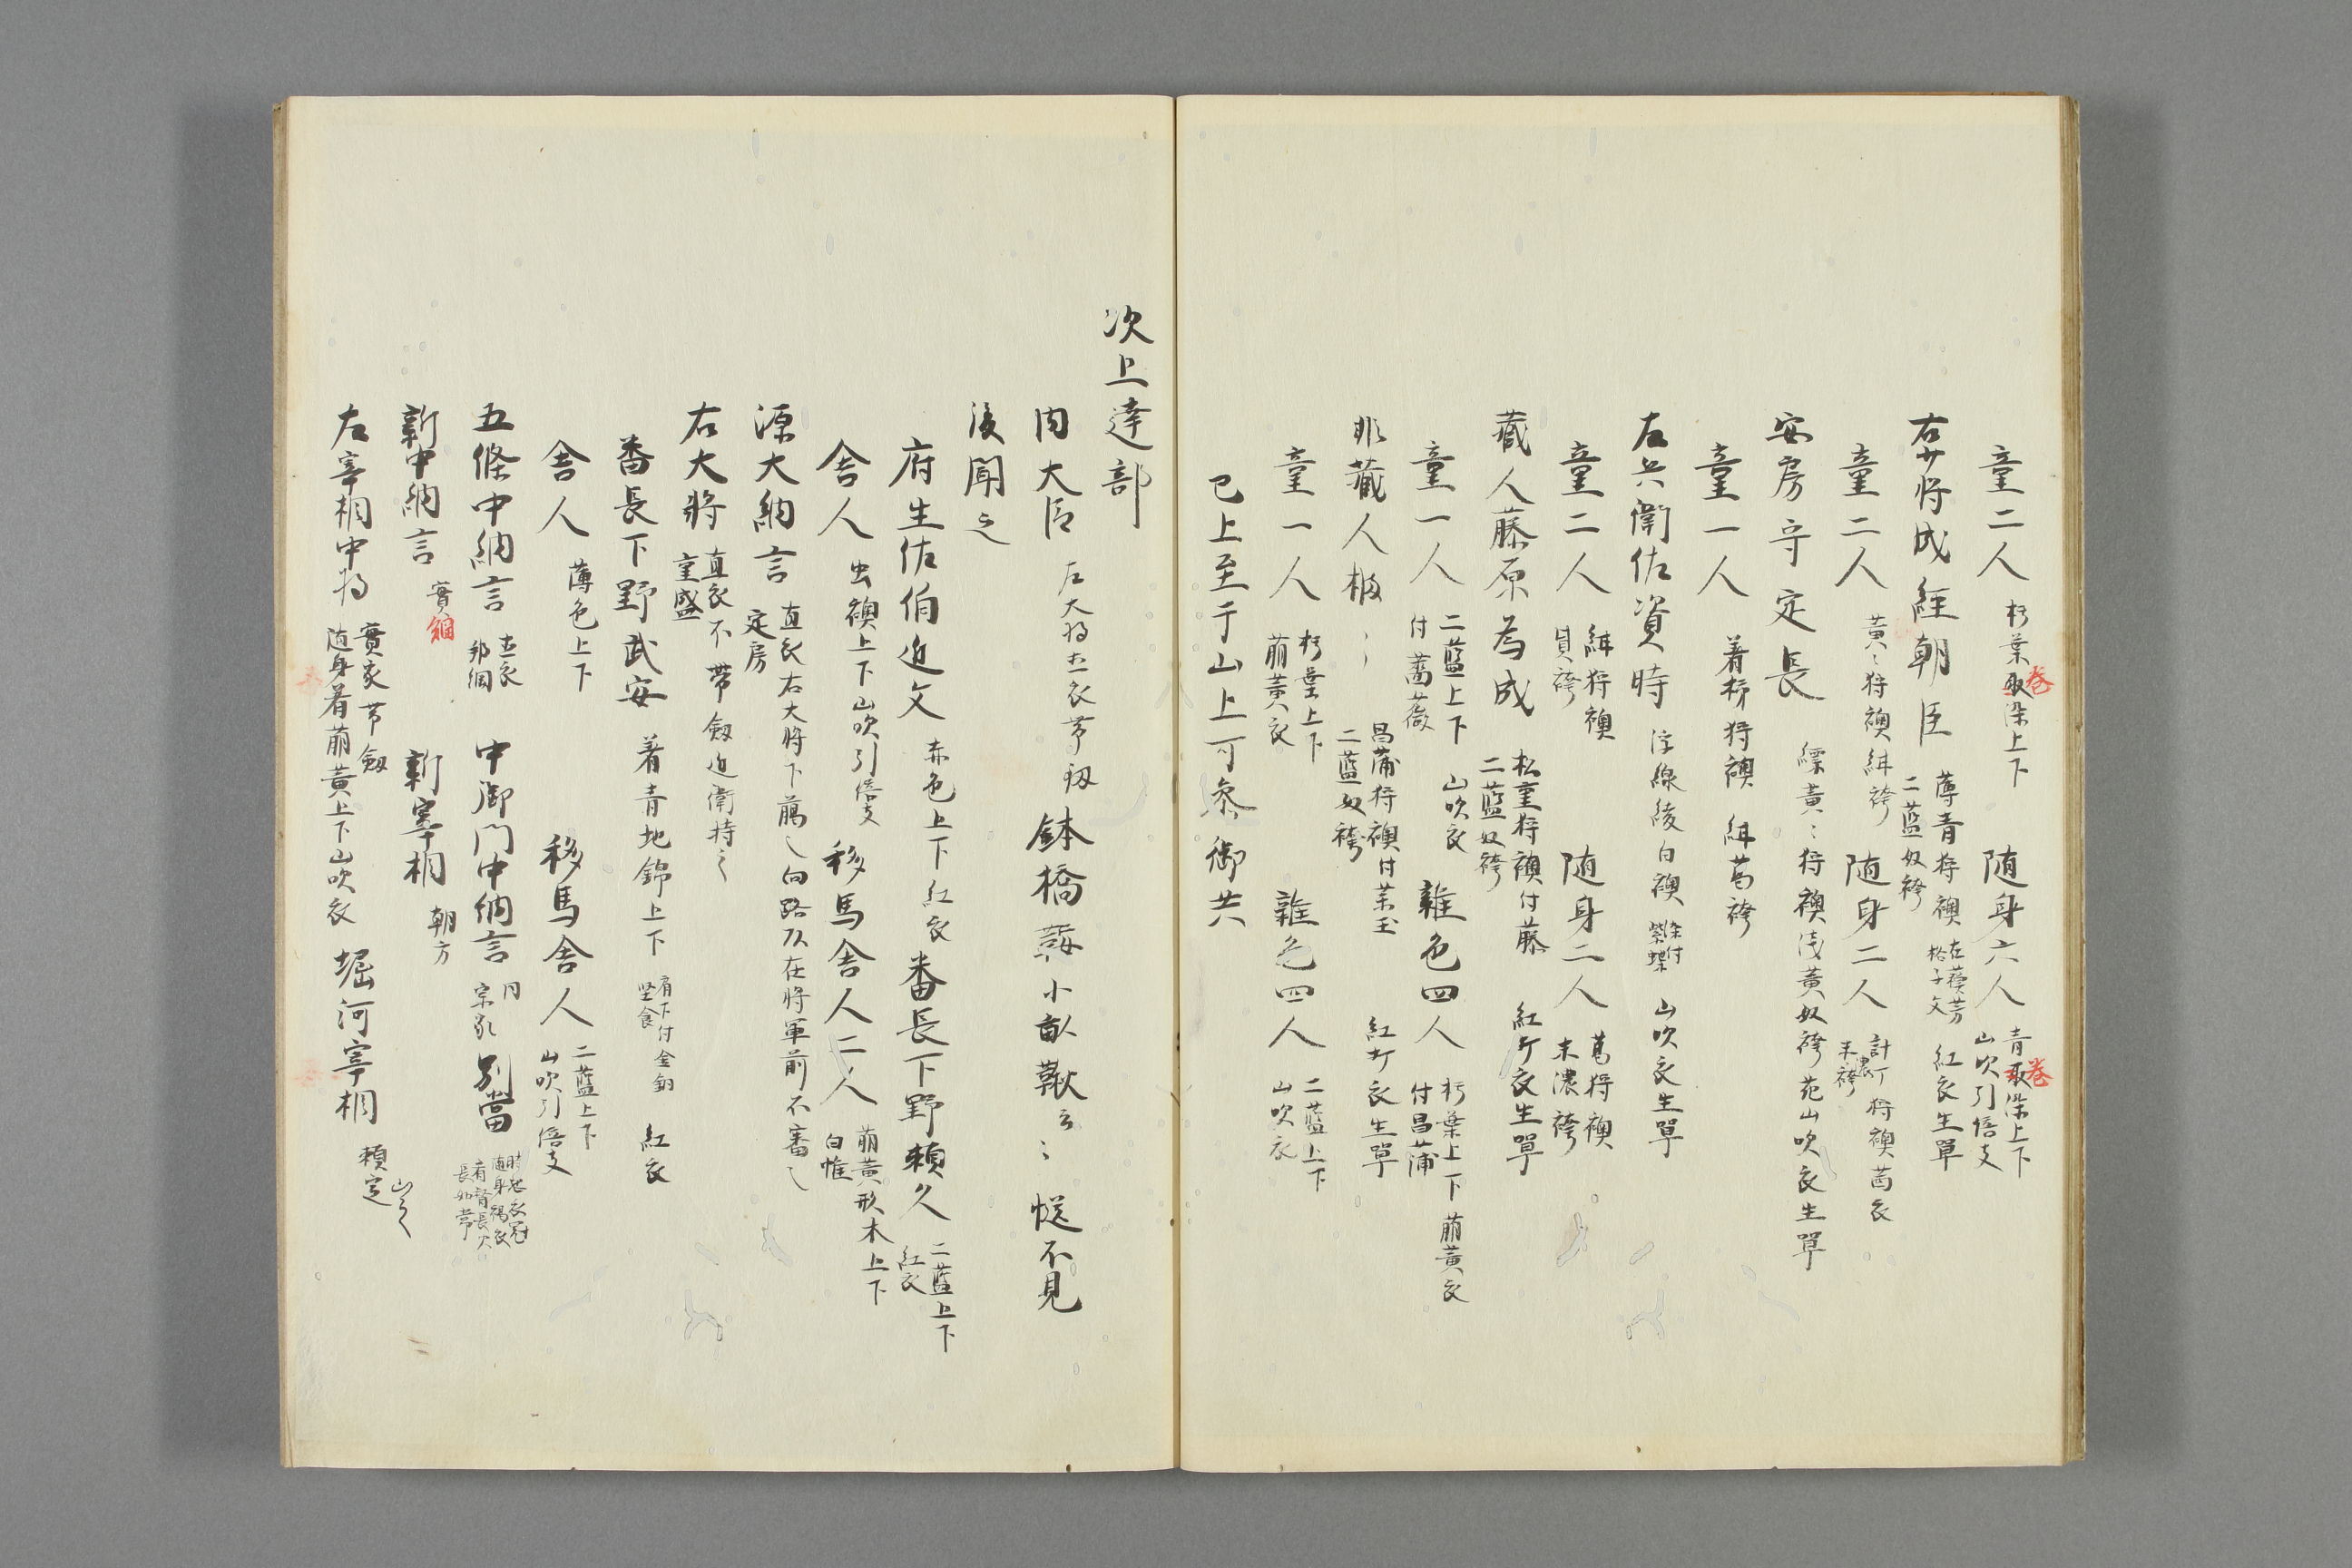 童二人 朽葉取染上下 随身六人 青取染上下 山吹引倍支
卷 卷
右少将成経朝臣 薄青狩襖 二藍奴袴 在蘇芳 格子文 紅衣生單
童二人 黄〻狩襖 紺袴 随身二人 狩襖 茜衣 末濃袴
安房守定長 縹黄〻狩襖浅黄奴袴 山吹衣生單
童一人 着 狩襖 紺葛袴
左兵衛佐資時 浮線綾白襖 山吹衣生單
童二人 紺狩襖 袴 随身二人 葛狩襖 末濃袴
蔵人藤原為成 松重狩襖付藤 二藍奴袴 紅打衣生單
童一人 二藍上下 付薔薇 山吹衣 雜色四人 朽葉上下 付昌蒲 萠黄衣
非蔵人 昌蒲狩襖付 玉 二藍奴袴 紅打衣生單
童一人 朽葉上下 萠黄衣 雜色四人 二藍上下 山吹衣
已上至于山上可参御共
次上達部
内大臣 左大将 直衣帯釼 鉢橋 小 鞦云〻 不見
後聞之
府生佐伯近文 赤色上下 紅衣 番長下野頼久 二藍上下 紅衣
舎人 虫襖上下 山吹引倍支 移馬舎人二人 萠黄形木上下 白帷
源大納言 定房 直衣右大将下﨟〻 向路次在将軍前不審〻
右大將 重盛 直衣不帶釼近衛持之
番長下野武安 着青地錦上下 紅衣
舎人 薄色上下 移馬舎人 二藍上下 山吹引倍支
五條中納言 直衣 邦綱 中御門中納言 同 宗家 別當 随身褐衣
新中納言 實綱 新宰相 朝方
左宰相中将 實家帯釼 随身着萠黄上下山吹衣 堀河宰相 頼定